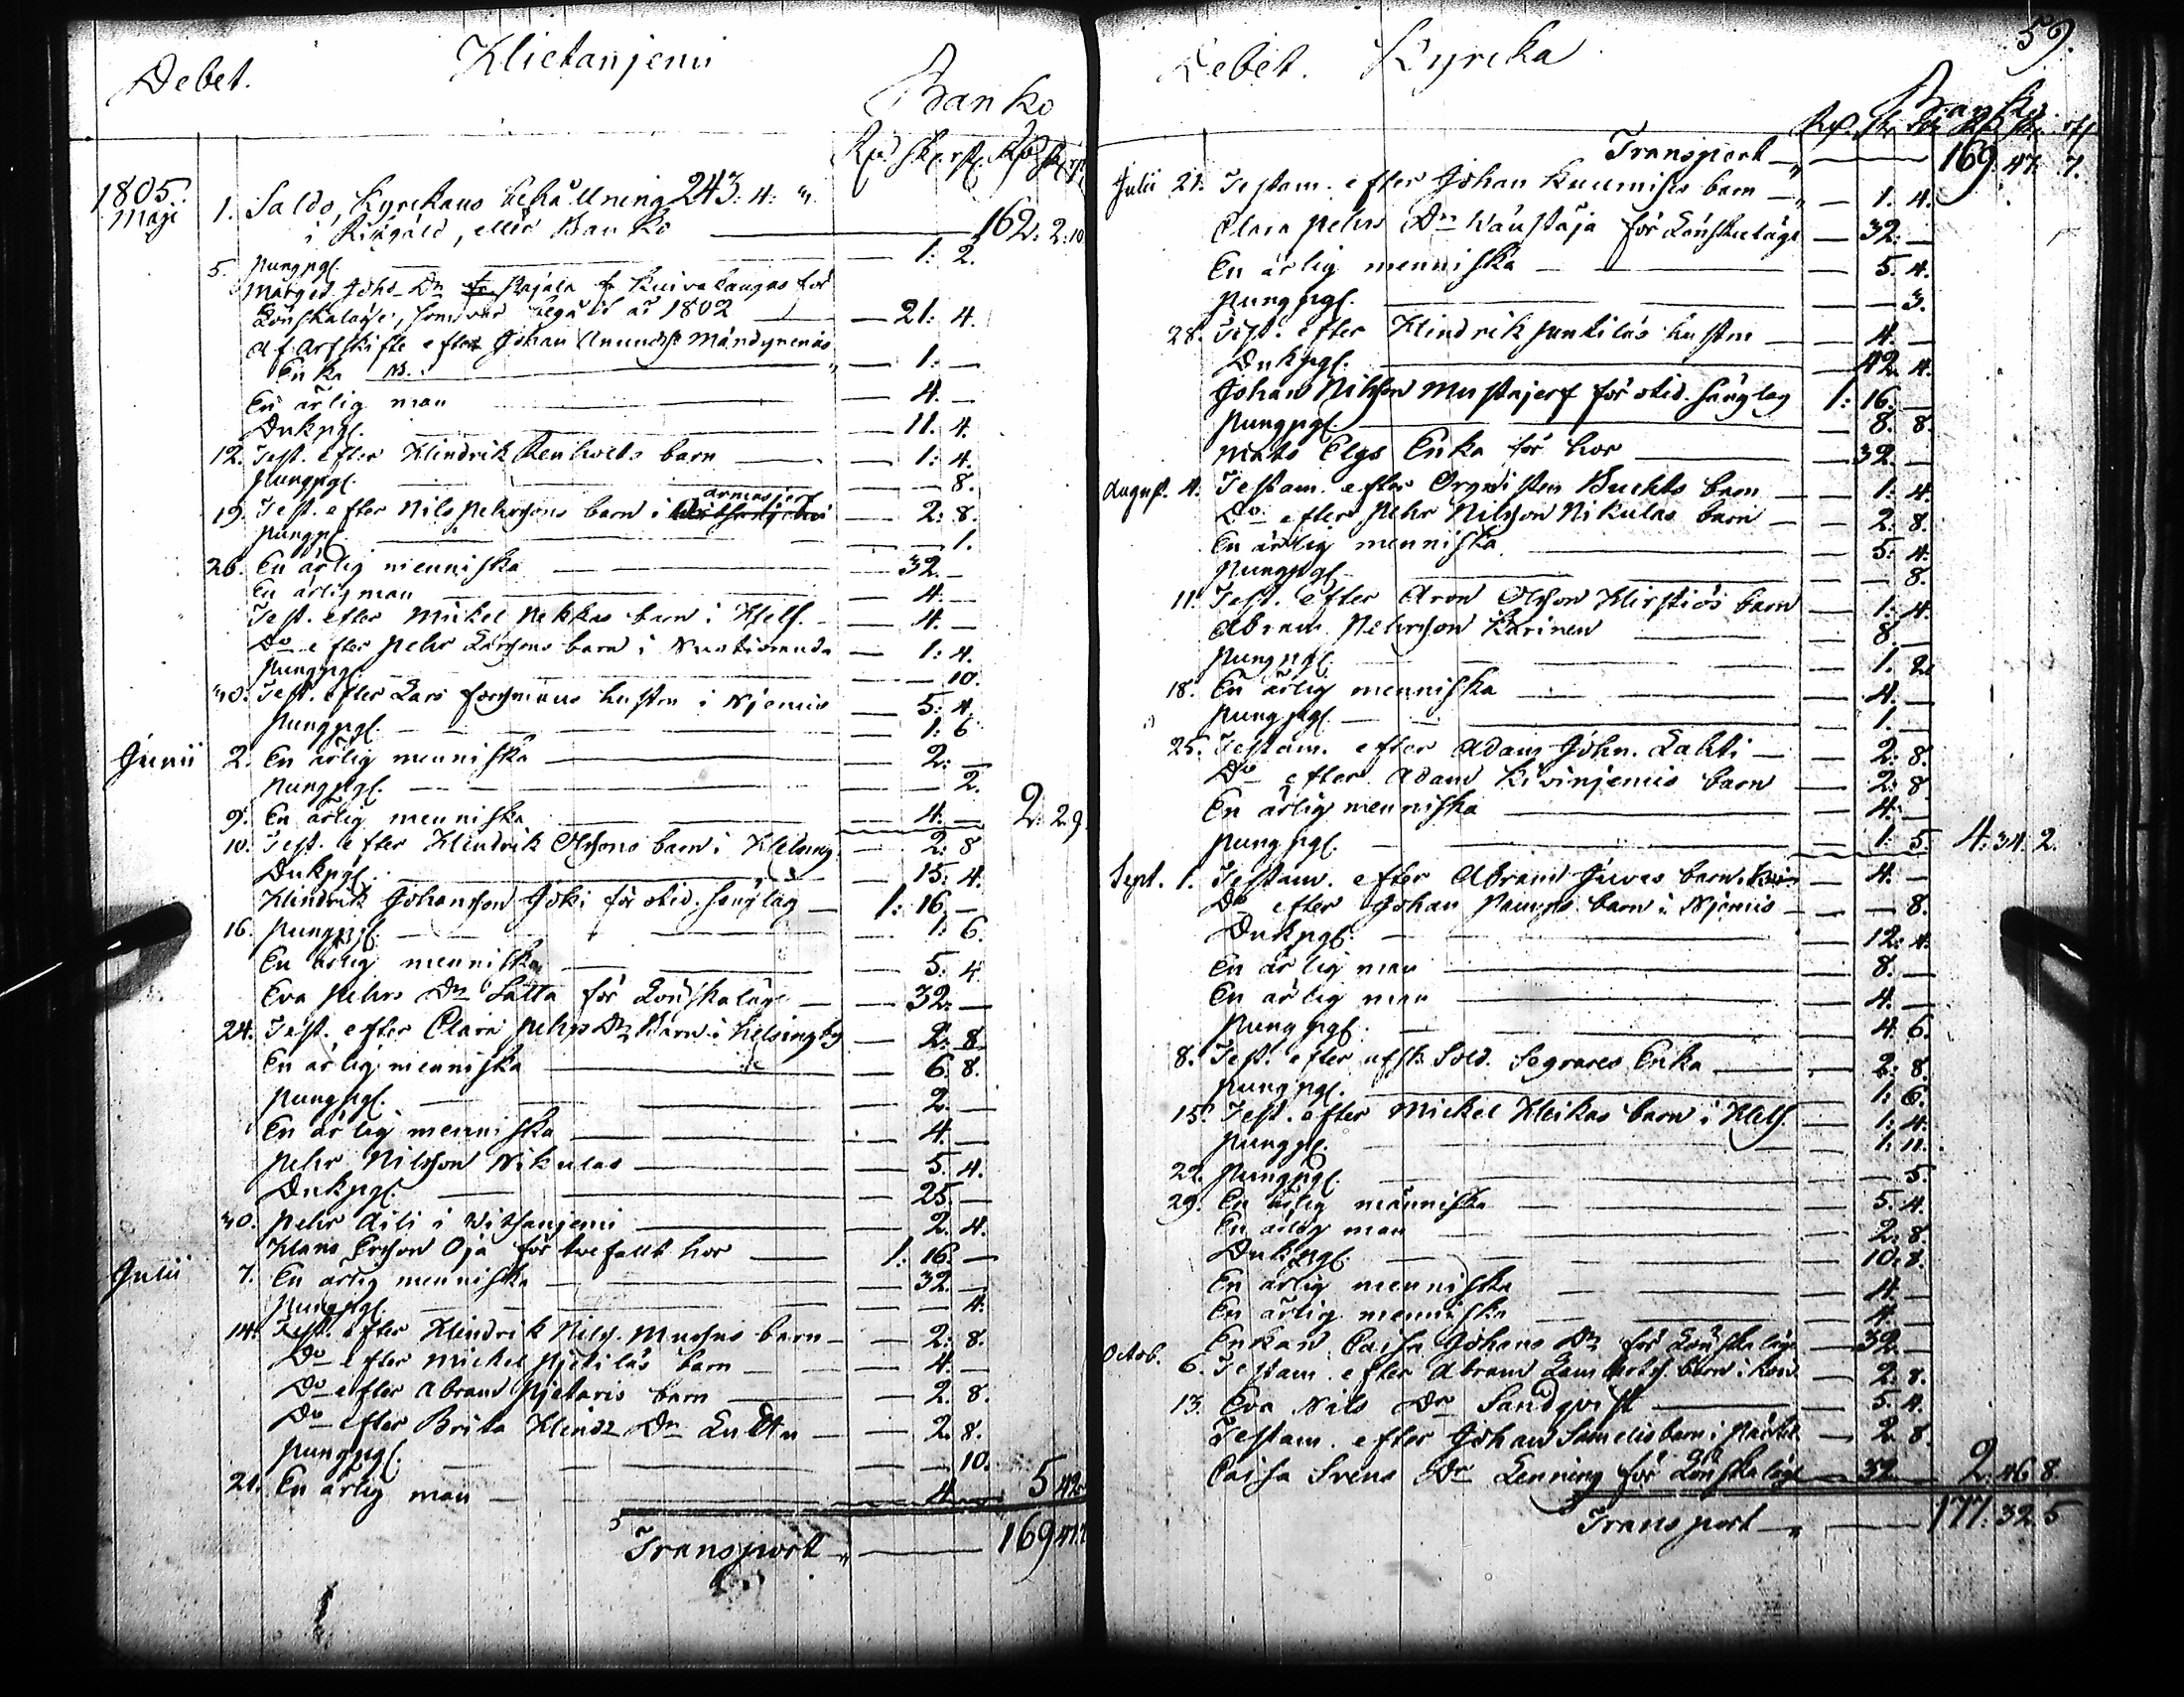 Debet. Hietanjemi
Banko
Rd. sk. rst. Rd. sk. rst.
1805.
Maji 1. Saldo, Kyrckans behållning 243: 4: "
i Riksgäld, eller Banko 162: 2: 10
5. Pungpgr. 1: 2.
Marget. Joh:s Dr Rajala fr. Kuivakangas för
Lönskaläge, som var begått år 1802 21: 4.
Af Arfskifte efter Johan Mändyrenäs
Enka 1: —
En ärlig man 4. —
Dukpgr. 11. 4.
12. Test. efter Hindrik Renholts barn 1: 4.
Pungpgr. 8.
19. Test. efter Nils Pehrssons barn i Armasjerf 2: 8.
Pungpgr. 1.
26. En ärlig menniska 32. —
En ärlig man 4. —
Test. efter Mickel Pekkas barn i Hels. 4. —
Do efter Pehr Larssons barn i Ruotioranda 1: 4.
Pungpgr. 10.
30. Test. efter Lars Forsmans hustru i Njemis 5: 4.
Pungpgr. 1: 6
Junii 2. En ärlig menniska 2: —
Pungpgr. 2.
9. En ärlig menniska 4. — 2: 2. 9.
10. Test. efter Hindrik Olssons barn i Helsing. 2: 8
Dukpgr. 15: 4.
Hindrik Johansson Joki för otid. sänglag 1: 16. —
16. Pungpgr. 1: 6.
En ärlig menniska 5. 4
Eva Pehrs Dr Salla för Lönskaläge 32. —
24. Test. efter Clara Pehrs Dr Barn i Helsingby 2: 8.
En ärlig menniska 6. 8.
Pungpgr. 2. —
En ärlig menniska 4. —
Pehr Nilsson Nikulas 5. 4.
Dukpgr. 25. —
30. Pehr Aili i Witsanjemi 2. 4.
Hans Ersson Oja för tvefallt hor 1: 16. —
Julii 7. En ärlig menniska 32. —
Pungpgr. 4.
14. Test. efter Hindrik Nils. barn 2: 8.
Do efter Mickel Pjetiläs barn 4. —
Do efter Abram Pjetaris barn 2. 8.
Do efter Brita Hindr. Dr 2. 8.
Pungpgr. 10.
21. En ärlig man 4. — 5 42
Transport " 169 47.
59.
Debet. Kyrcka
Banko
Rd. sk. rst. Rd. sk. rst
Transport " 169. 47. 7.
Julii 21. Testam. efter Johan barn 1. 4.
Clara Pehrs Dr för Lönskaläge 32. —
En ärlig menniska 5. 4.
Pungpgr. 3.
28. Test. efter Hindrik Juntiläs hustru 4. —
Dukpgr. 42. 4.
Johan Nilsson Mustajerf för otid. sänglag 1: 16. —
Pungpgr. 8. 8.
Mats Elgs Enka för hor 32. —
August. 4. Testam. efter Organisten Buchts barn 1: 4.
Do efter Pehr Nilsson Nikulas barn 2: 8.
En ärlig menniska 5: 4.
Pungpgr. 8.
11. Test. efter Aron Olsson Hirstiös barn 1: 4.
Abram Pehrsson Karinen 8. —
Pungpgr. 1: 2
18. En ärlig menniska 4. —
Pungpgr. 1. —
25. Testam. efter Adam Johs. Lahti 2: 8.
Do efter Adam Kivinjemis barn 2: 8
En ärlig menniska 4. —
Pungpgr. 1: 5. 4: 34: 2.
Sept. 1. Testam. efter Abram Juvas barn 4. —
Do efter Johan barn i Njemis 8.
Dukpgr. 12: 4.
En ärlig man 8. —
En ärlig man 4. —
Pungpgr. 4. 6.
8. Test. efter afsk. Sold. Segrares Enka 2: 8.
Pungpgr. 1: 6.
15. Test. efter Mickel Heikas barn i Hels. 1: 4.
Pungpgr. 1: 11.
22. Pungpgr. 5.
29. En ärlig människa 5. 4.
En ärlig man 2. 8.
Dukpgr. 10. 8.
En ärlig menniska 4. —
En ärlig menniska 4. —
Enkan Caisa Johans Dr för Lönskaläge 32. —
Octob. 6. Testam. efter Abram barn i 2: 8.
13. Eva Nils Dr Sandqvist 5. 4.
Testam. efter Johan Samelis barn i 2. 8.
Caisa Svens Dr Lenning för Lönskaläge 32 — 2. 46. 8.
Transport " 177: 32. 5